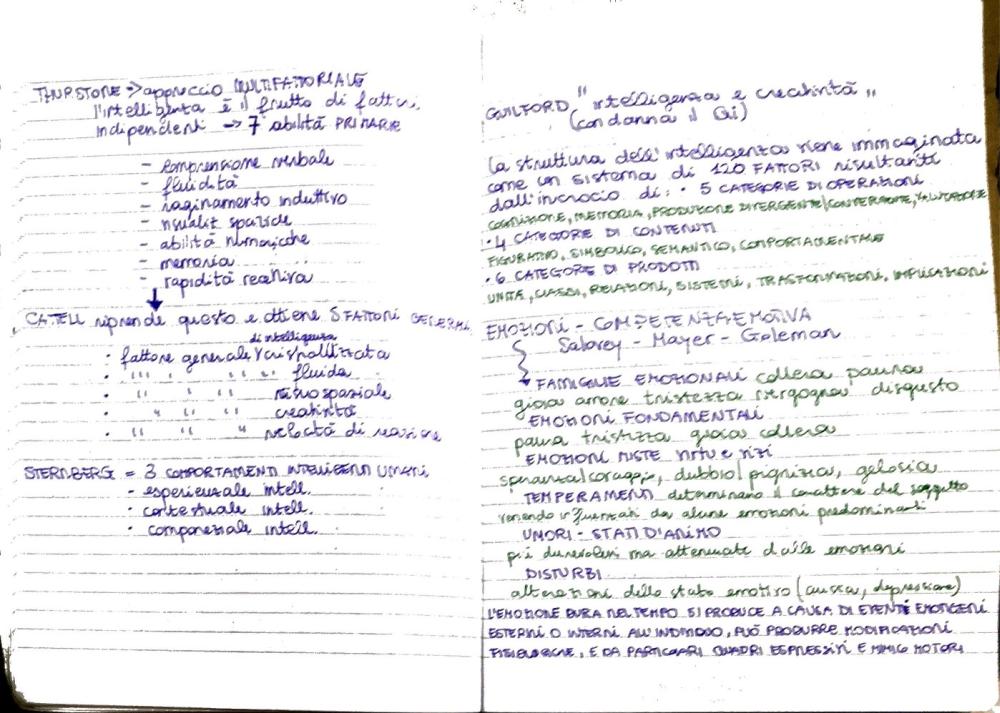 THURSTONE -> approccio MULTIFATTORIALE
l'intelligenza è il frutto di fattori
indipendenti -> 7 abilità PRIMARIE
- comprensione verbale
- fluidità
- raginamento induttivo
- visualiz spaziale
- abilità numeriche
- memoria
- rapidità reattiva
CATELL riprende questo e ottiene 5 FATTORI GENERALI
di intelligenza
· fattore generale cristallizzata
· " " " " " fluida
· " " " visuo spaziale
· " " " creatività
· " " " velocità di reazione
STERNBERG = 3 COMPORTAMENTI INTELLIGENTI UMANI
- esperienziale intell.
- contestuale intell.
- componenziale intell.
GUILFORD "intelligenza e creatività"
(condanna il Qi)
la struttura dell'intelligenza viene immaginata
come un sistema di 120 FATTORI risultanti
dall'incrocio di: · 5 CATEGORIE DI OPERAZIONI
COGNIZIONE, MEMORIA, PRODUZIONE DIVERGENTE/CONVERGENTE, VALUTAZIONE
· 4 CATEGORIE DI CONTENUTI
FIGURATIVO, SIMBOLICO, SEMANTICO, COMPORTAMENTALE
· 6 CATEGORIE DI PRODOTTI
UNITÀ, CLASSI, RELAZIONI, SISTEMI, TRASFORMAZIONI, IMPLICAZIONI
EMOZIONI - COMPETENZA EMOTIVA
Salovey - Mayer - Goleman
FAMIGLIE EMOZIONALI collera paura
gioia amore tristezza vergogna disgusto
EMOZIONI FONDAMENTALI
paura tristezza gioia collera
EMOZIONI MISTE virtù e vizi
speranza/coraggio, dubbio/pigrizia, gelosia
TEMPERAMENTI determinano il carattere del soggetto
venendo influenzati da alcune emozioni predominanti
UMORI - STATI D'ANIMO
più durevoli ma attenuate dalle emozioni
DISTURBI
alterazioni dello stato emotivo (ansia, depressione)
L'EMOZIONE DURA NEL TEMPO SI PRODUCE A CAUSA DI EVENTI EMOTIGENI
ESTERNI O INTERNI ALL'INDIVIDUO, PUÒ PRODURRE MODIFICAZIONI
FISIOLOGICHE, E DA PARTICOLARI QUADRI ESPRESSIVI E MIMICO MOTORI